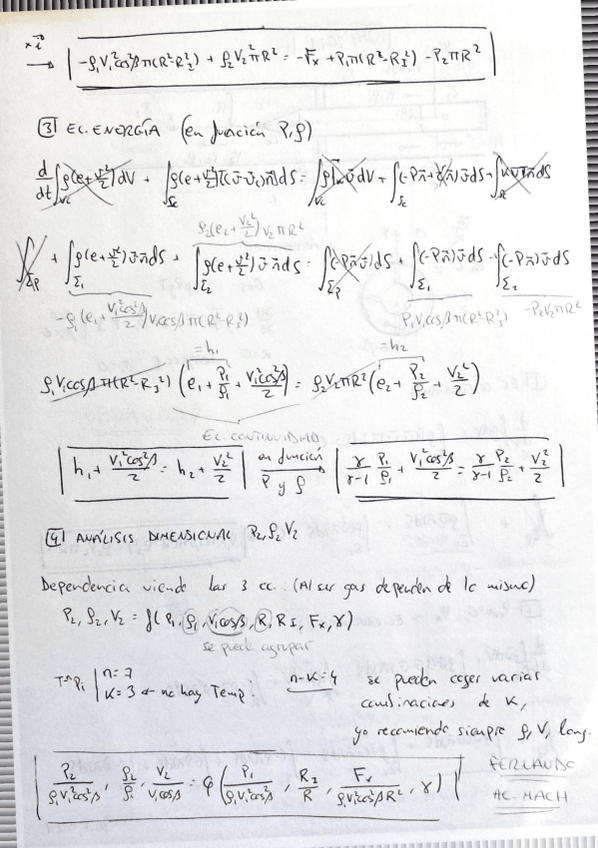 x î
→ | -ρ₁V₁²cos²β π(R²-R_I²) + ρ₂V₂²πR² = -F_x + P₁π(R²-R_I²) - P₂πR² |
3 EC. ENERGÍA (en función P, ρ)
d/dt ∫_Vc ρ(e+v²/2)dV + ∫_Sc ρ(e+v²/2)[(v̄-v̄c)n̄]dS = ∫_Vc ρ v̄ dV + ∫_Sc (-Pn̄+ n̄)v̄dS + ∫_Sc K∇T n̄dS
ρ₂(e₂+V₂²/2)V₂πR²
∫_Σp + ∫_Σ₁ ρ(e+v²/2)v̄·n̄dS + ∫_Σ₂ ρ(e+v²/2)v̄·n̄dS = ∫_Σp (-Pn̄)v̄dS + ∫_Σ₁ (-Pn̄)v̄dS + ∫_Σ₂ (-Pn̄)v̄dS
-ρ₁(e₁+V₁²cos²β/2)V₁cosβ π(R²-R_I²) P₁V₁cosβ π(R²-R_I²) -P₂V₂πR²
=h₁ =h₂
ρ₁V₁cosβ π(R²-R_I²) (e₁ + P₁/ρ₁ + V₁²cos²β/2) = ρ₂V₂πR² (e₂ + P₂/ρ₂ + V₂²/2)
EC. CONTINUIDAD
| h₁ + V₁²cos²β/2 = h₂ + V₂²/2 | en función P y ρ → | γ/(γ-1) P₁/ρ₁ + V₁²cos²β/2 = γ/(γ-1) P₂/ρ₂ + V₂²/2 |
4 ANÁLISIS DIMENSIONAL P₂, ρ₂, V₂
Dependencia viende las 3 ec. (Al ser gas dependen de lo mismo)
P₂, ρ₂, V₂ = f(P₁, ρ₁, V₁cosβ, R, R_I, F_x, γ)
se puede agrupar
Tᵐᵃ Pi | n=7 n-K=4 se pueden coger varias
K=3 ← no hay Temp combinaciones de K,
yo recomiendo siempre ρ, V, long.
| P₂/(ρ₁V₁²cos²β), ρ₂/ρ₁, V₂/(V₁cosβ) = φ(P₁/(ρ₁V₁²cos²β), R_I/R, F_x/(ρ₁V₁²cos²βR²), γ) |
FERNANDO
MACH